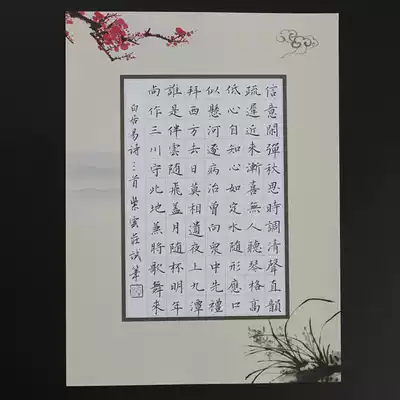 信意閑彈秋思時調清聲直韻
疏遲近來漸喜無人聽琴格高
低心自知心如定水隨形應口
似懸河逐病治曾向衆中先禮
拜西方去日莫相遺夜上九潭
誰是伴雲隨飛蓋月隨杯明年
尚作三川守此地兼將歌舞來
白居易诗三首 紫雲莊试筆